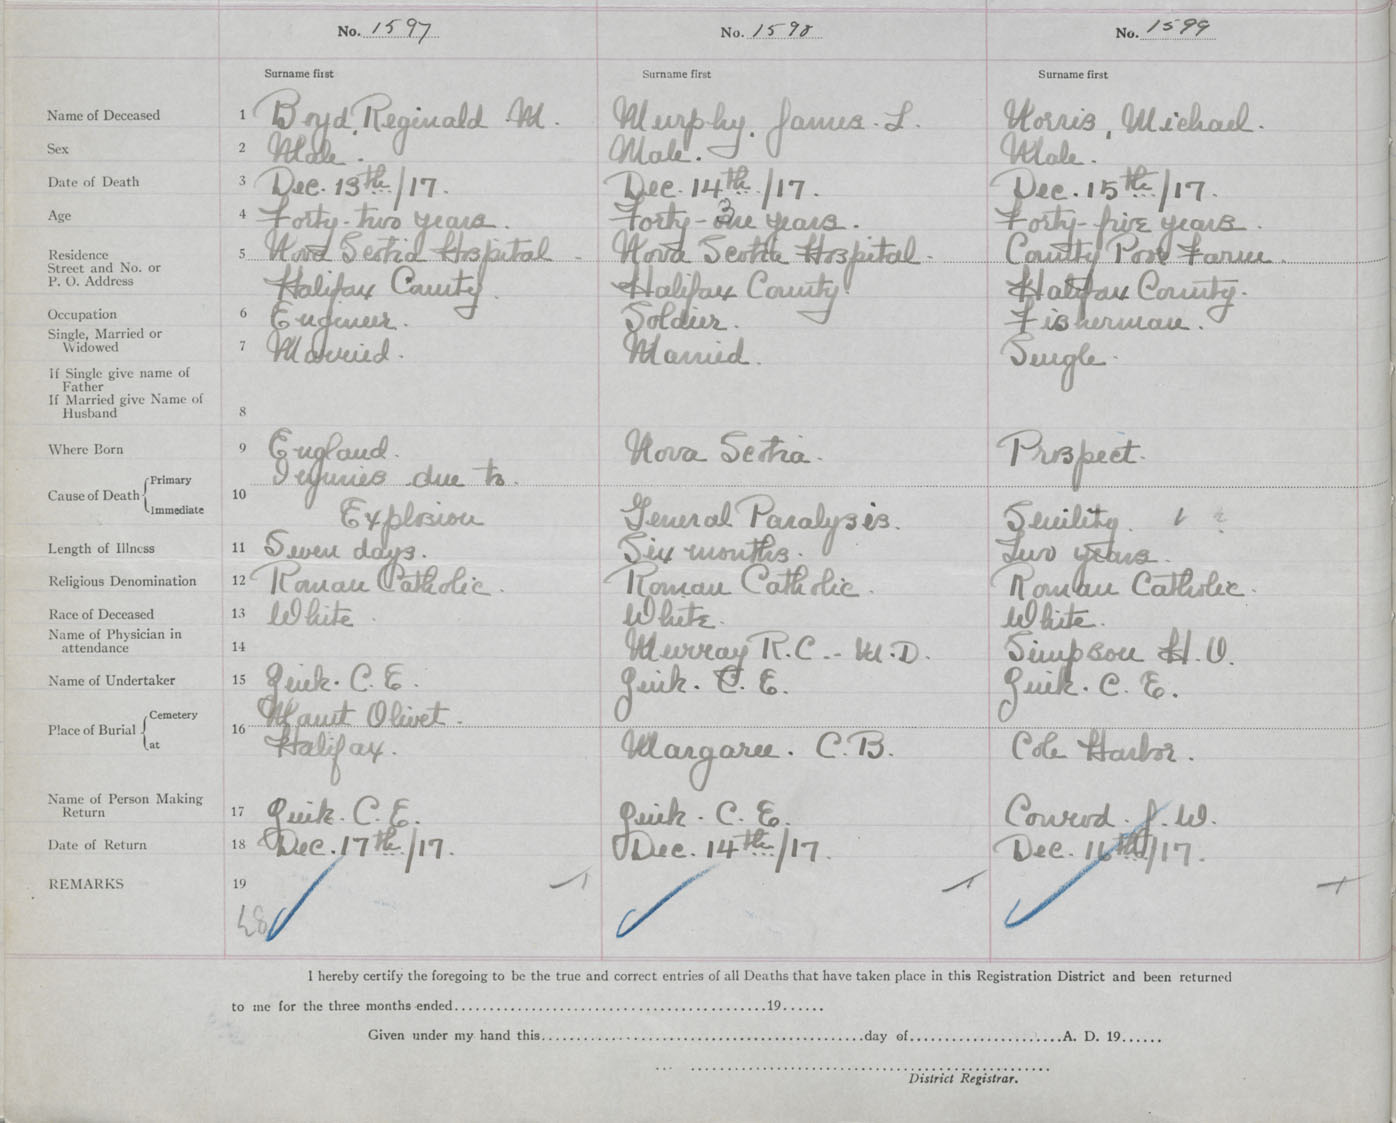 No. 1597 No. 1598 No. 1599
Surname first Surname first Surname first
Name of Deceased 1 Boyd, Reginald M. Murphy, James. L. Norris, Michael.
Sex 2 Male. Male. Male.
Date of Death 3 Dec. 13th/17. Dec. 14th/17. Dec. 15th/17.
Age 4 Forty-two years. Forty- years. Forty-five years.
Residence 5 Nova Scotia Hospital Nova Scotia Hospital. County Poor Farm.
Street and No. or
P. O. Address Halifax County. Halifax County. Halifax County.
Occupation 6 Engineer. Soldier. Fisherman.
Single, Married or
Widowed 7 Married. Married. Single.
If Single give name of
Father
If Married give Name of
Husband 8
Where Born 9 England. Nova Scotia. Prospect.
Cause of Death Primary 10 Injuries due to
Immediate Explosion General Paralysis. Senility.
Length of Illness 11 Seven days. Six months. Two years.
Religious Denomination 12 Roman Catholic. Roman Catholic. Roman Catholic.
Race of Deceased 13 White. White. White.
Name of Physician in
attendance 14 Murray R.C. M.D. Simpson H.O.
Name of Undertaker 15 C. E. C. E. C. E.
Place of Burial Cemetery 16 Mount Olivet.
at Halifax. Margaree. C.B. Cole Harbor.
Name of Person Making
Return 17 C. E. C. E. Conrod. J. W.
Date of Return 18 Dec. 17th/17. Dec. 14th/17. Dec. 16th/17.
REMARKS 19
I hereby certify the foregoing to be the true and correct entries of all Deaths that have taken place in this Registration District and been returned
to me for the three months ended 19
Given under my hand this day of A. D. 19
District Registrar.